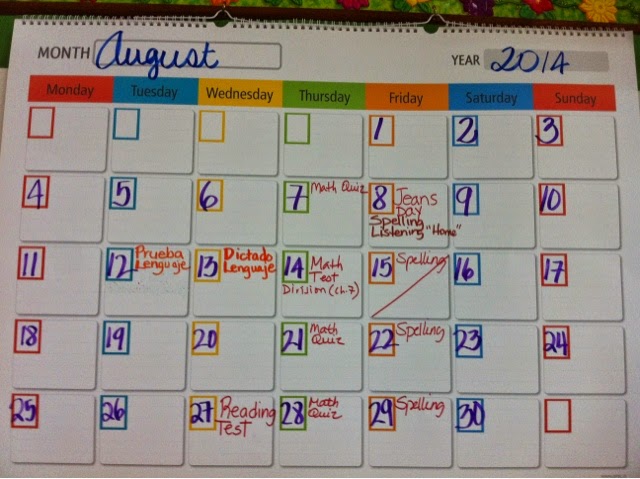 MONTH August YEAR 2014
Monday Tuesday Wednesday Thursday Friday Saturday Sunday
1 2 3
4 5 6 7 Math Quiz 8 Jeans 9 10
Day
Spelling
Listening "Home"
11 12 Prueba 13 Dictado 14 Math 15 Spelling 16 17
Lenguaje Lenguaje Test
Division (ch.7)
18 19 20 21 Math 22 Spelling 23 24
Quiz
25 26 27 Reading 28 Math 29 Spelling 30
Test Quiz